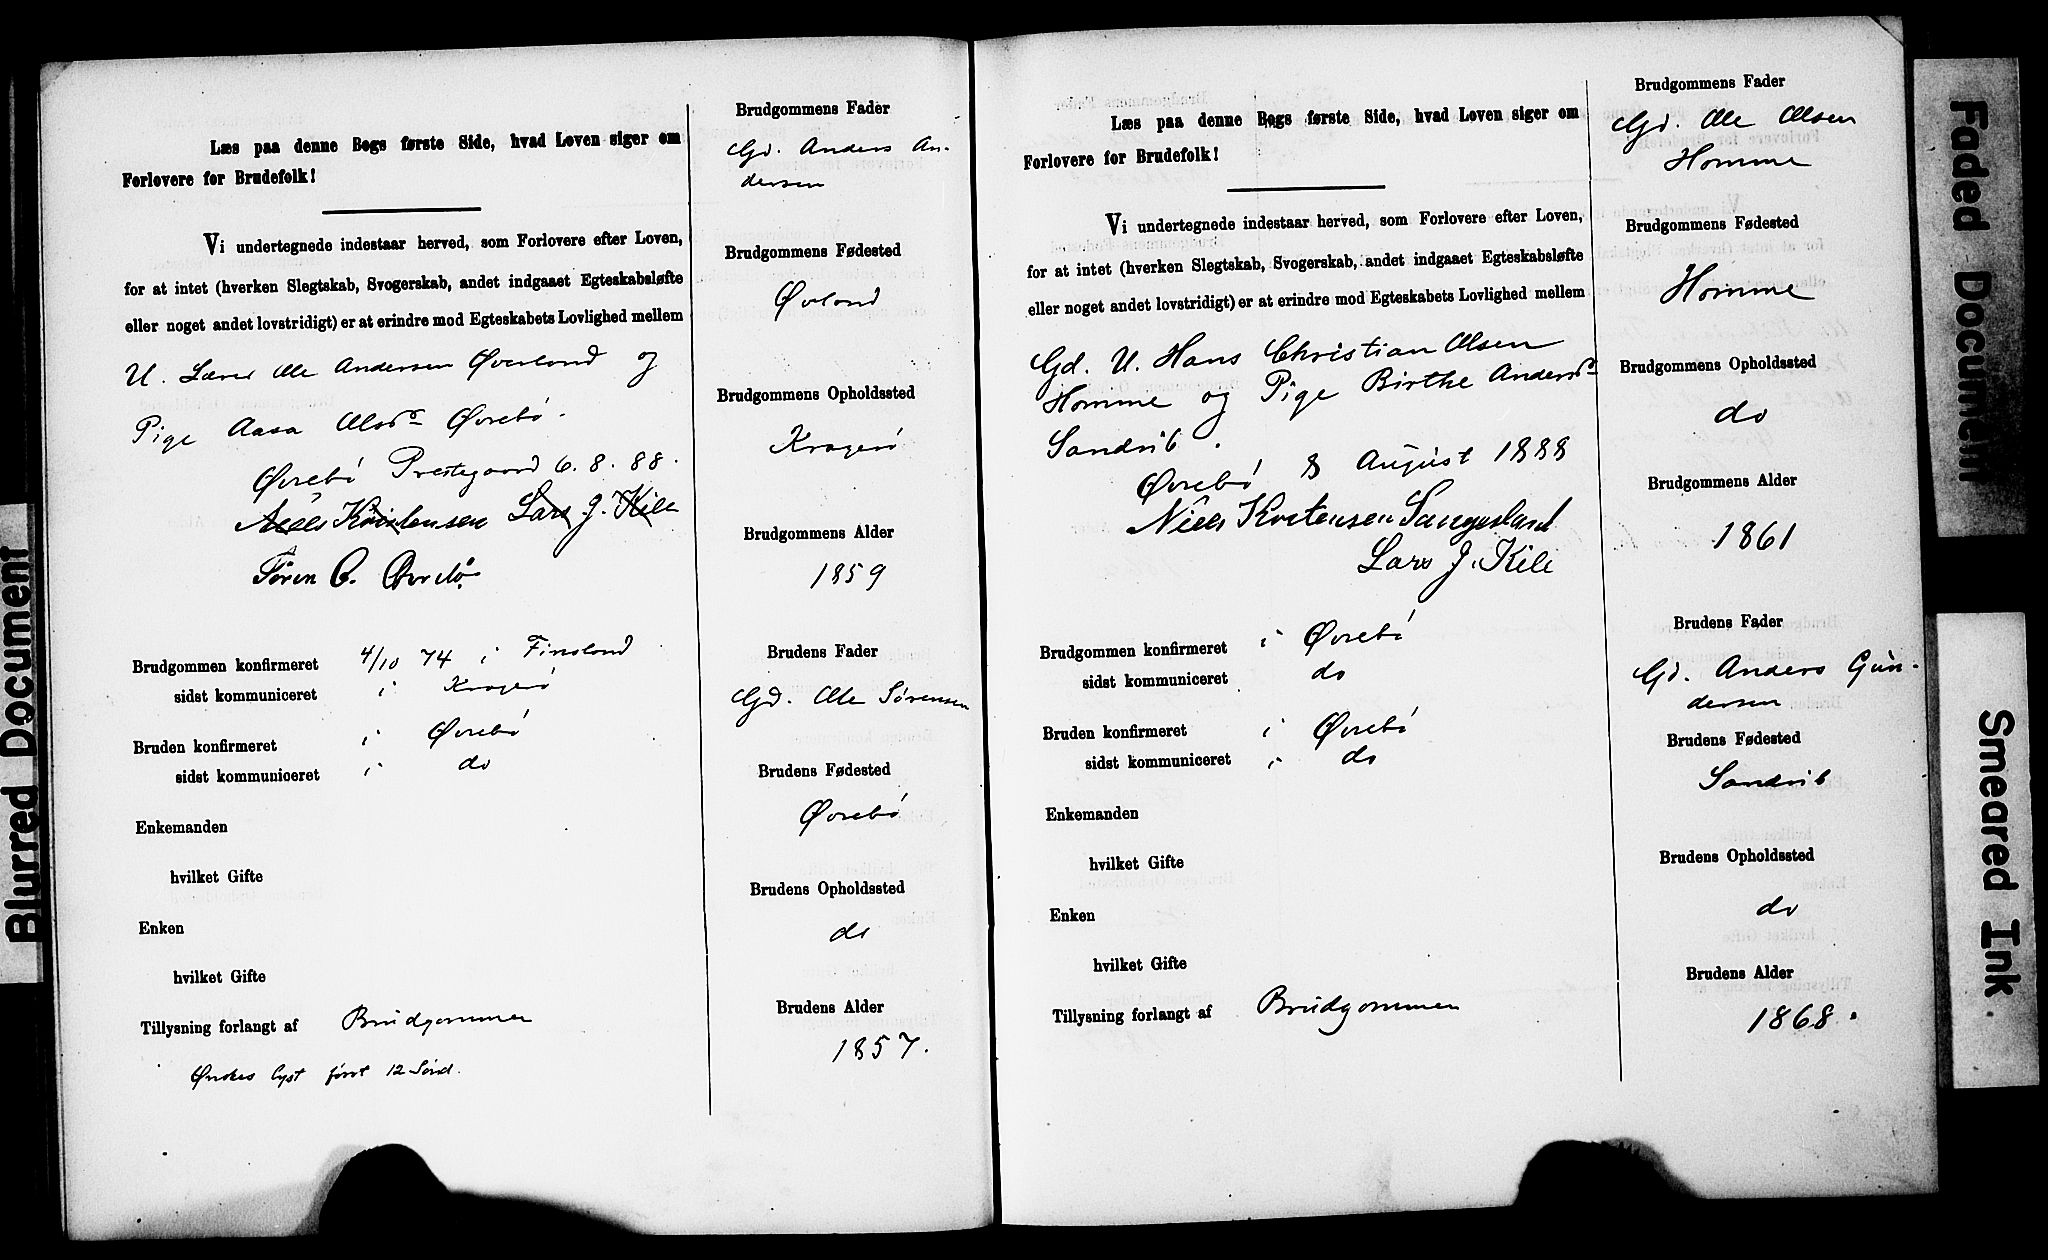 Læs paa denne Bogs første Side, hvad Loven siger om
Forlovere for Brudefolk!
Vi undertegnede indestaar herved, som Forlovere efter Loven,
for at intet (hverken Slegtskab, Svogerskab, andet indgaaet Egteskabsløfte
eller noget andet lovstridigt) er at erindre mod Egteskabets Lovlighed mellem
U. Lærer Ole Andersen Øverland og
Pige Aasa Olsdr Øvrebø.
Øvrebø Prestegaard 6. 8. 88.
Niels Kristensen Lars J. Kile
Søren O. Øvrebø
Brudgommen konfirmeret 4/10 74 i Finsland
sidst kommuniceret i Kragerø
Bruden konfirmeret i Øvrebø
sidst kommuniceret i do
Enkemanden
hvilket Gifte
Enken
hvilket Gifte
Tillysning forlangt af Brudgommen
Ønskes lyst først 12 Sønd.
Brudgommens Fader
Gd. Anders An-
dersen
Brudgommens Fødested
Øvland
Brudgommens Opholdssted
Kragerø
Brudgommens Alder
1859
Brudens Fader
Gd. Ole Sørensen
Brudens Fødested
Øvrebø
Brudens Opholdssted
do
Brudens Alder
1857.
Læs paa denne Bogs første Side, hvad Loven siger om
Forlovere for Brudefolk!
Vi undertegnede indestaar herved, som Forlovere efter Loven,
for at intet (hverken Slegtskab, Svogerskab, andet indgaaet Egteskabsløfte
eller noget andet lovstridigt) er at erindre mod Egteskabets Lovlighed mellem
Gd. U. Hans Christian Olsen
Homme og Pige Birthe Andersdr
Sandvik.
Øvrebø 8 August 1888
Niels Kristensen Langesland
Lars J. Kile
Brudgommen konfirmeret i Øvrebø
sidst kommuniceret do
Bruden konfirmeret i Øvrebø
sidst kommuniceret i do
Enkemanden
hvilket Gifte
Enken
hvilket Gifte
Tillysning forlangt af Brudgommen
Brudgommens Fader
Gd. Ole Olsen
Homme
Brudgommens Fødested
Homme
Brudgommens Opholdssted
do
Brudgommens Alder
1861
Brudens Fader
Gd. Anders Gun-
dersen
Brudens Fødested
Sandvik
Brudens Opholdssted
do
Brudens Alder
1868.
Blurred Document
Faded Document
Smeared Ink.